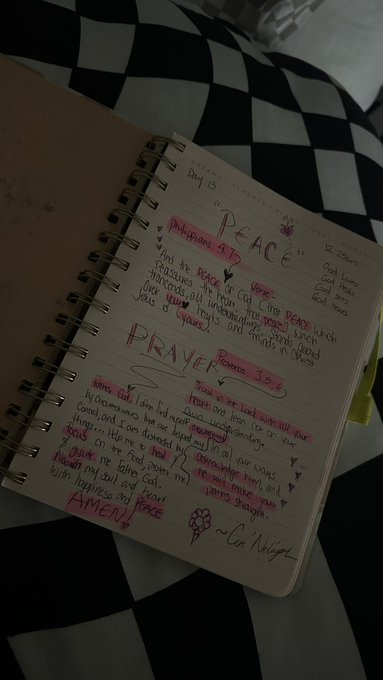 Day 13
"PEACE"
12:25am
Philippians 4:7
God Loves
God Heals
God sees
God Hears
verse-
And the PEACE of God (that PEACE which
reassures the heart that peace) which
transcends all understanding, stands guard
over your hearts and minds in Christ
Jesus is (yours).
PRAYER
Proverbs 3:5,6
Trust in the Lord with all your
heart and lean not on your
own understanding.
In all your ways
acknowledge Him, and
he will make your
paths straight.
Father God, I often find myself
by circumstances that are beyond my
control, and I am distracted by
things... Help me to heal &
focus in the
& guide me Father God.
Nourish my soul and heart
with happiness and PEACE
AMEN